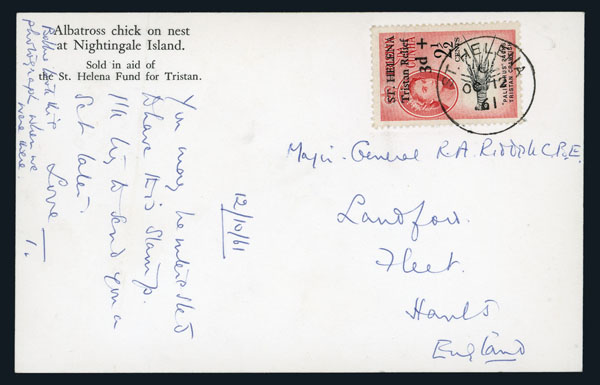 Albatross chick on nest
at Nightingale Island.
Sold in aid of
the St. Helena Fund for Tristan.
took this
photograph when we
were here.
You may be interested
to have this stamp.
I'll try to send you a
set later.
Love
T.
12/10/61
ST. HELENA
Tristan Relief
3d +
2½
CUNHA
HELENA
OC 12
61
Major-General R.A. C.B.E.
Fleet.
Hants
England